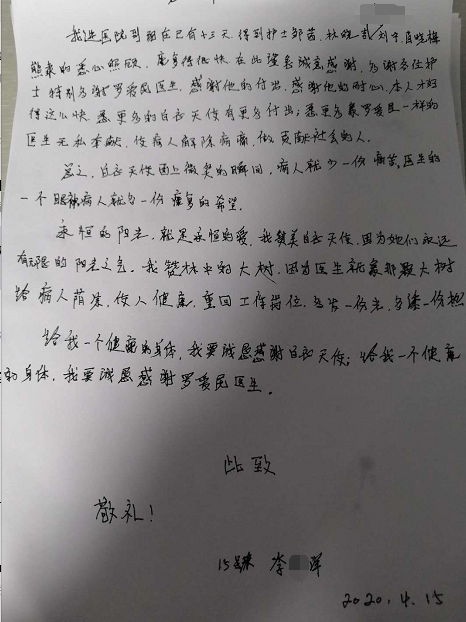 我进医院到现在已有十三天得到护士邹苗、林晓
熊泉的悉心照顾,康复得很快在此望各诚恳感谢,多谢各位护
士特别多谢罗爱民医生,感谢他的付出,感谢他的对心本人才好
得这么快愿更多的白衣天使有更多付出;愿更多象罗爱民一样的
医生无私奉献,使病人解除病痛,做贡献社会的人。
总之,白衣天使面上微笑的瞬间,病人就少一份痛苦,医生的
一个眼神病人就多一份康复的希望。
永恒的阳光,就是永恒的爱,我赞美白衣天使,因为她们永远
有无限的阳光之气。我赞林中的大树,因为医生就象那颗大树
给病人荫凉,使人健康,重回工作岗位,多发一份光,多添一份热
给我一个健康的身体,我要诚恳感谢白衣天使;给我一个健康
的身体,我要诚恳感谢罗爱民医生。
此致
敬礼!
15床 李 洋
2020.4.15